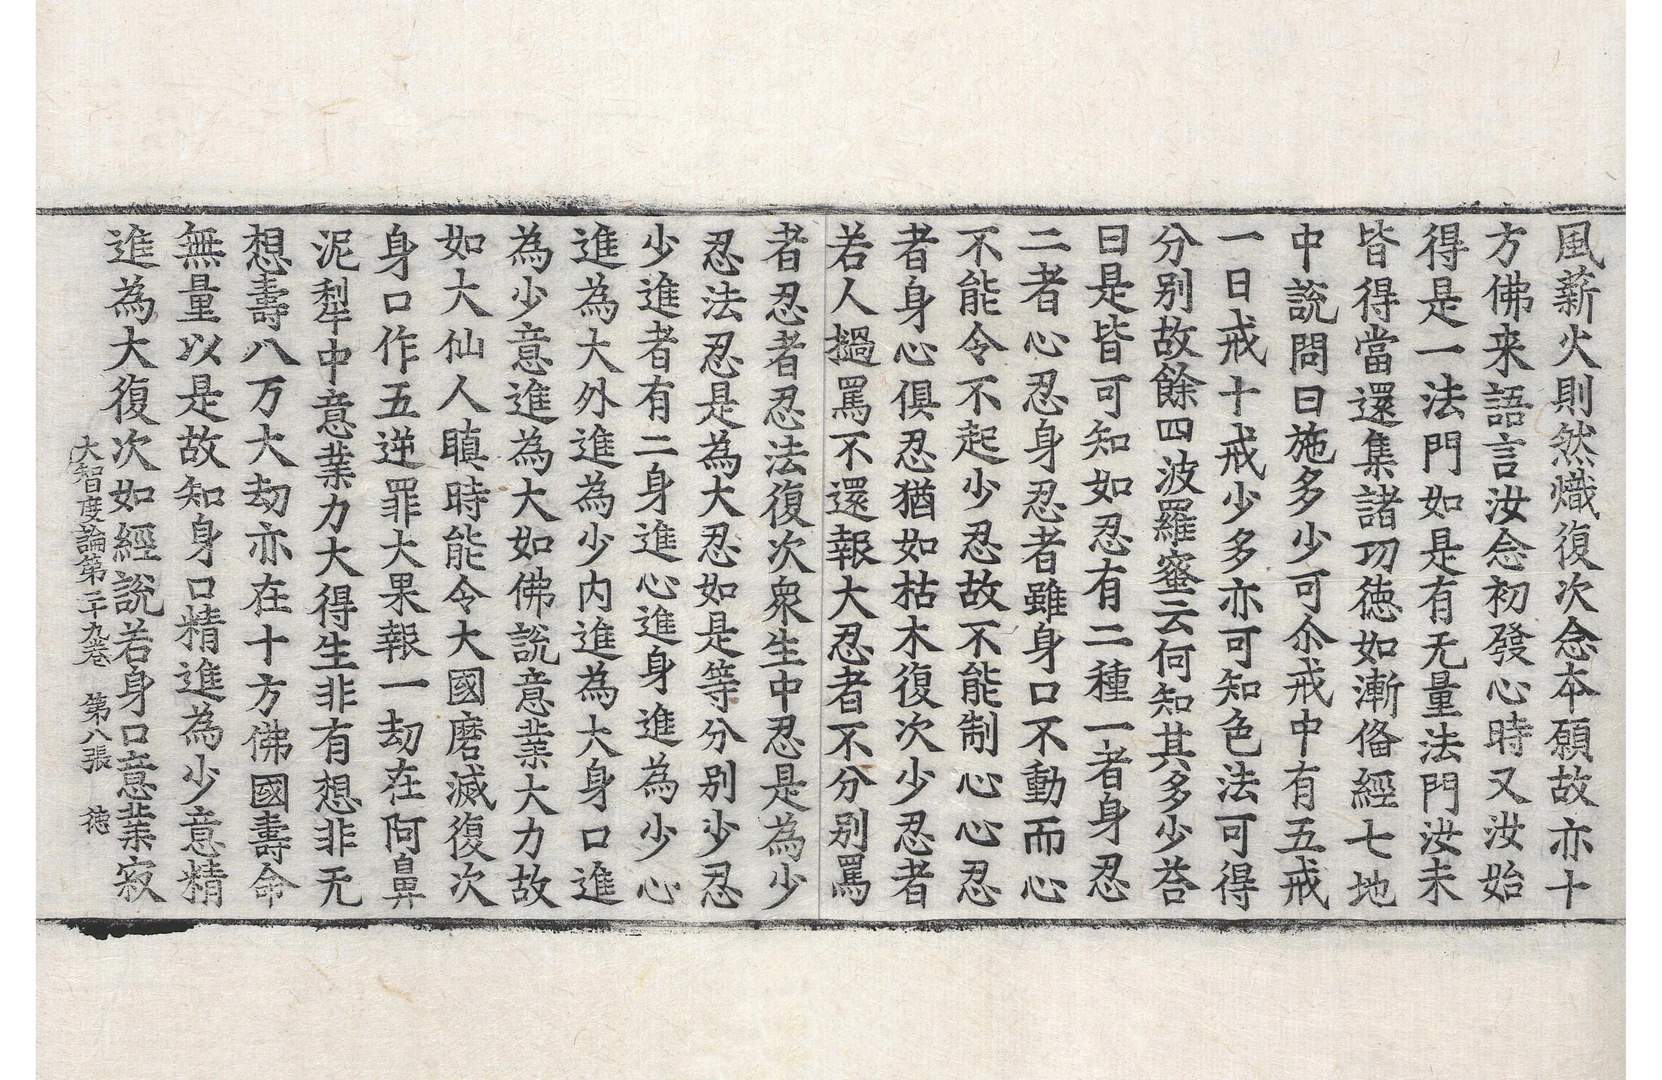 風薪火則然熾復次念本願故亦十
方佛来語言汝念初發心時又汝始
得是一法門如是有无量法門汝未
皆得當還集諸功徳如漸俻經七地
中說問曰施多少可尒戒中有五戒
一日戒十戒少多亦可知色法可得
分別故餘四波羅蜜云何知其多少荅
曰是皆可知如忍有二種一者身忍
二者心忍身忍者雖身口不動而心
不能令不起少忍故不能制心心忍
者身心俱忍猶如枯木復次少忍者
若人撾罵不還報大忍者不分別罵
者忍者忍法復次衆生中忍是為少
忍法忍是為大忍如是等分別少忍
少進者有二身進心進身進為少心
進為大外進為少內進為大身口進
為少意進為大如佛說意業大力故
如大仙人瞋時能令大國磨滅復次
身口作五逆罪大果報一劫在阿鼻
泥犁中意業力大得生非有想非无
想壽八万大劫亦在十方佛國壽命
無量以是故知身口精進為少意精
進為大復次如經說若身口意業寂
大智度論第二十九卷　第八張　徳